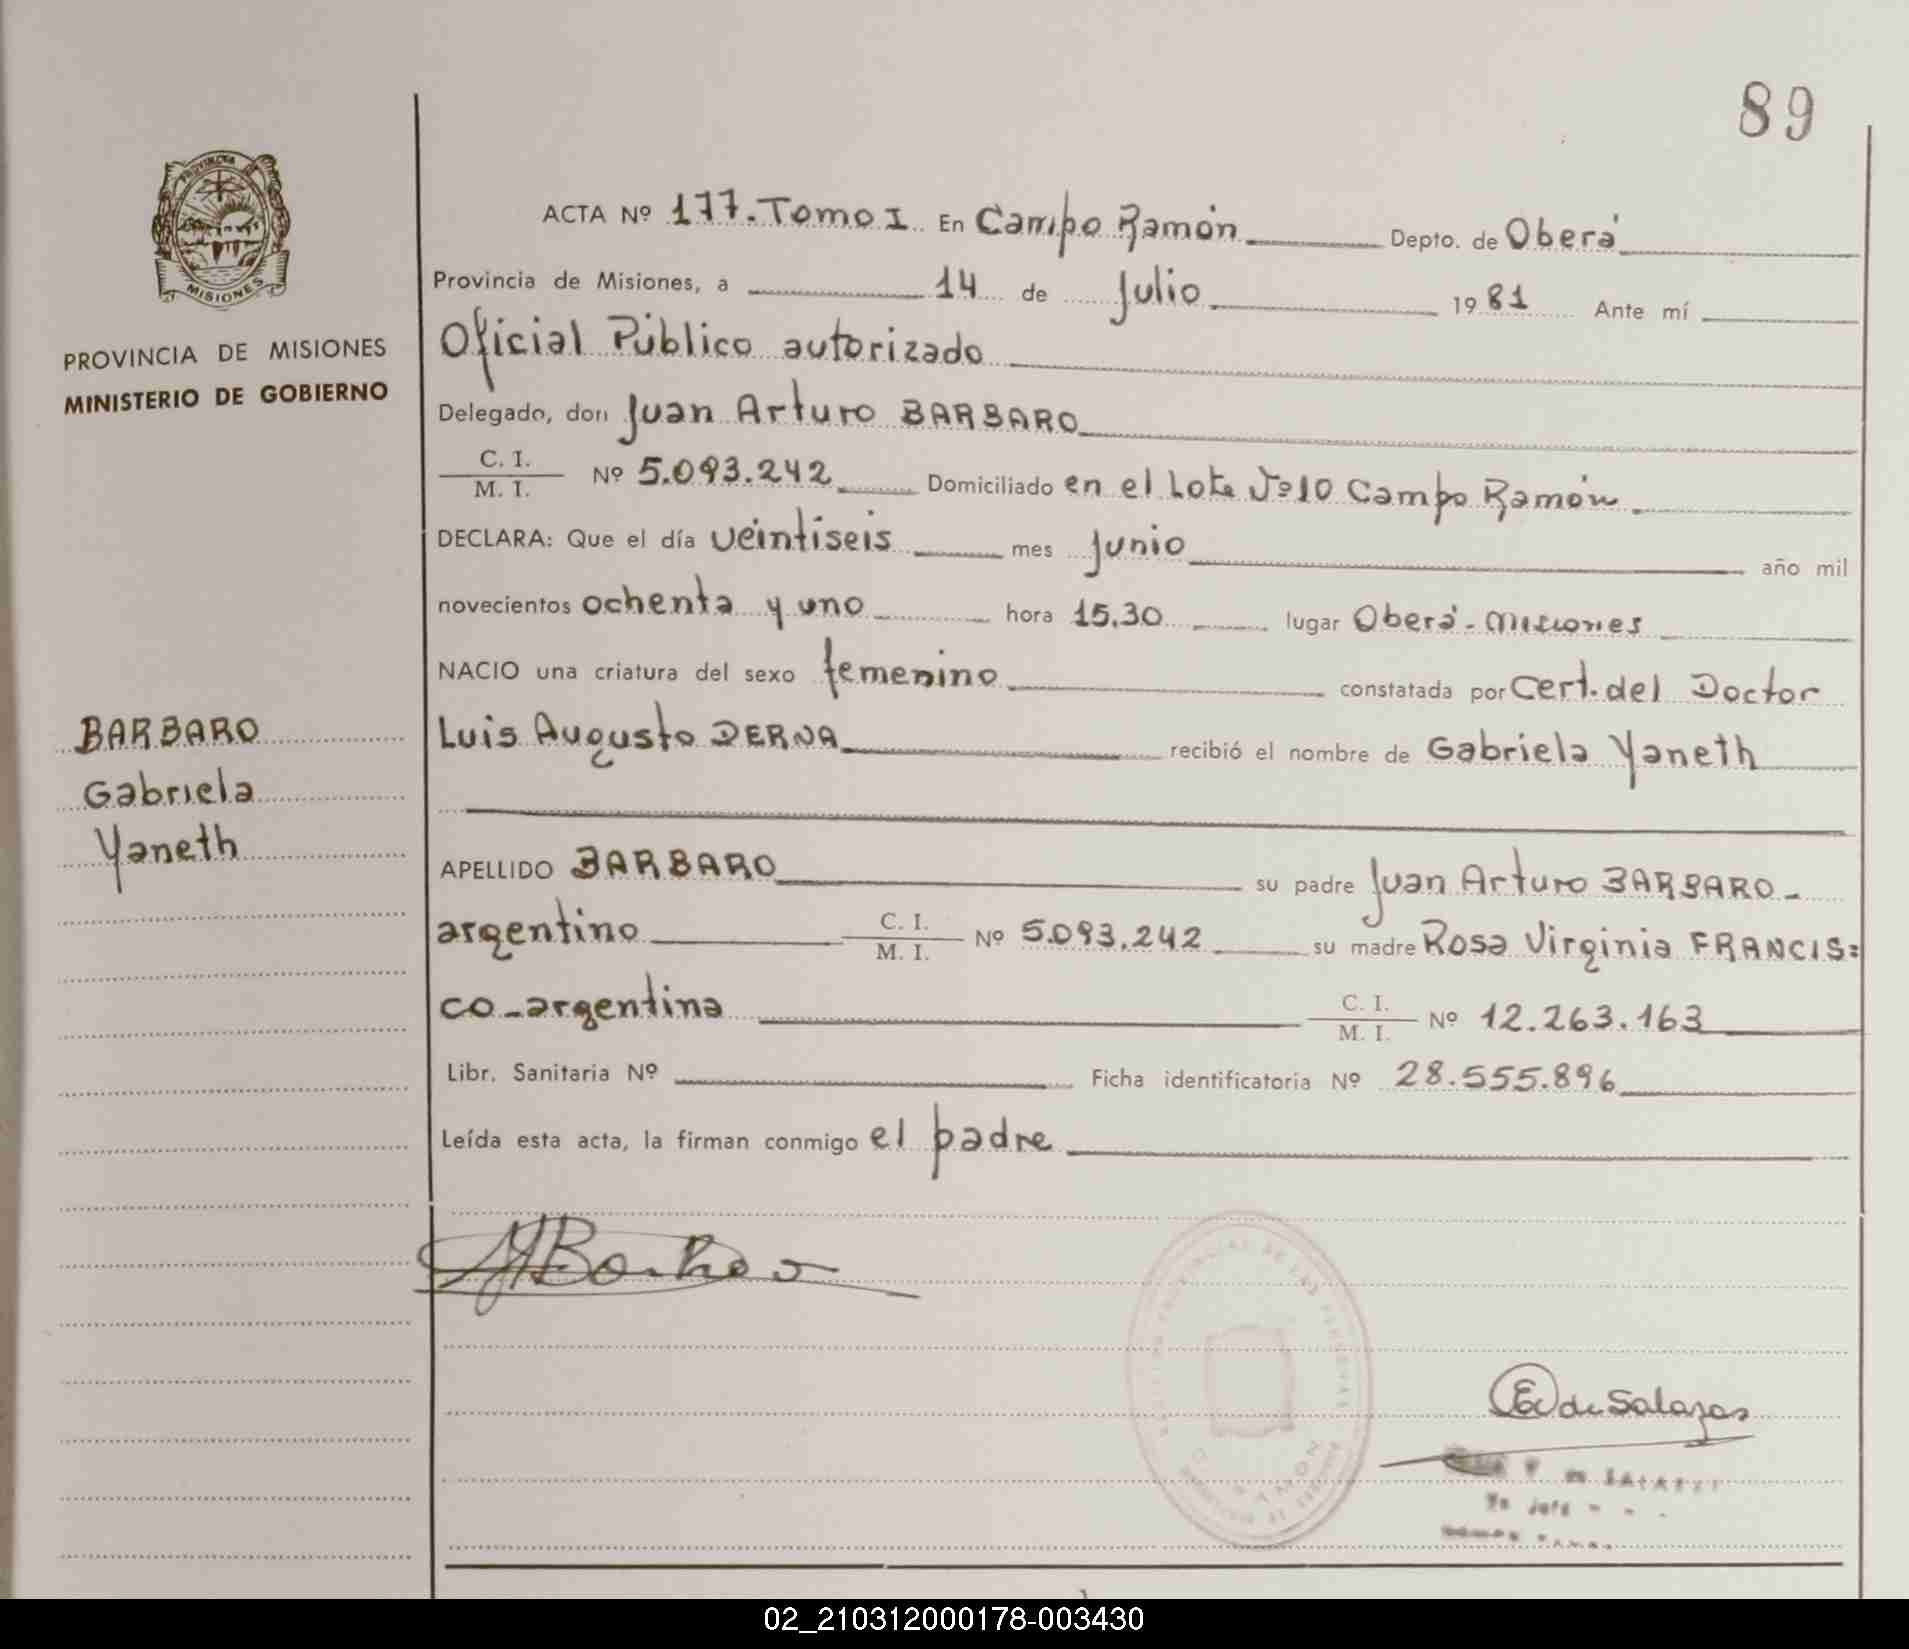 89
PROVINCIA DE
MISIONES
PROVINCIA DE MISIONES
MINISTERIO DE GOBIERNO
BARBARO
Gabriela
Yaneth
ACTA Nº 177. Tomo I En Campo Ramón Depto. de Oberá
Provincia de Misiones, a 14 de Julio 1981 Ante mí
Oficial Público autorizado
Delegado, don Juan Arturo BARBARO
C. I.
M. I. Nº 5.093.242 Domiciliado en el Lote Nº 10 Campo Ramón
DECLARA: Que el día veintiseis mes junio año mil
novecientos ochenta y uno hora 15,30 lugar Oberá - Misiones
NACIO una criatura del sexo femenino constatada por Cert. del Doctor
Luis Augusto DERNA recibió el nombre de Gabriela Yaneth
APELLIDO BARBARO su padre Juan Arturo BARBARO -
argentino C. I.
M. I. Nº 5.093.242 su madre Rosa Virginia FRANCIS=
co - argentina C. I.
M. I. Nº 12.263.163
Libr. Sanitaria Nº Ficha identificatoria Nº 28.555.896
Leída esta acta, la firman conmigo el padre
de Salazar
02_210312000178-003430